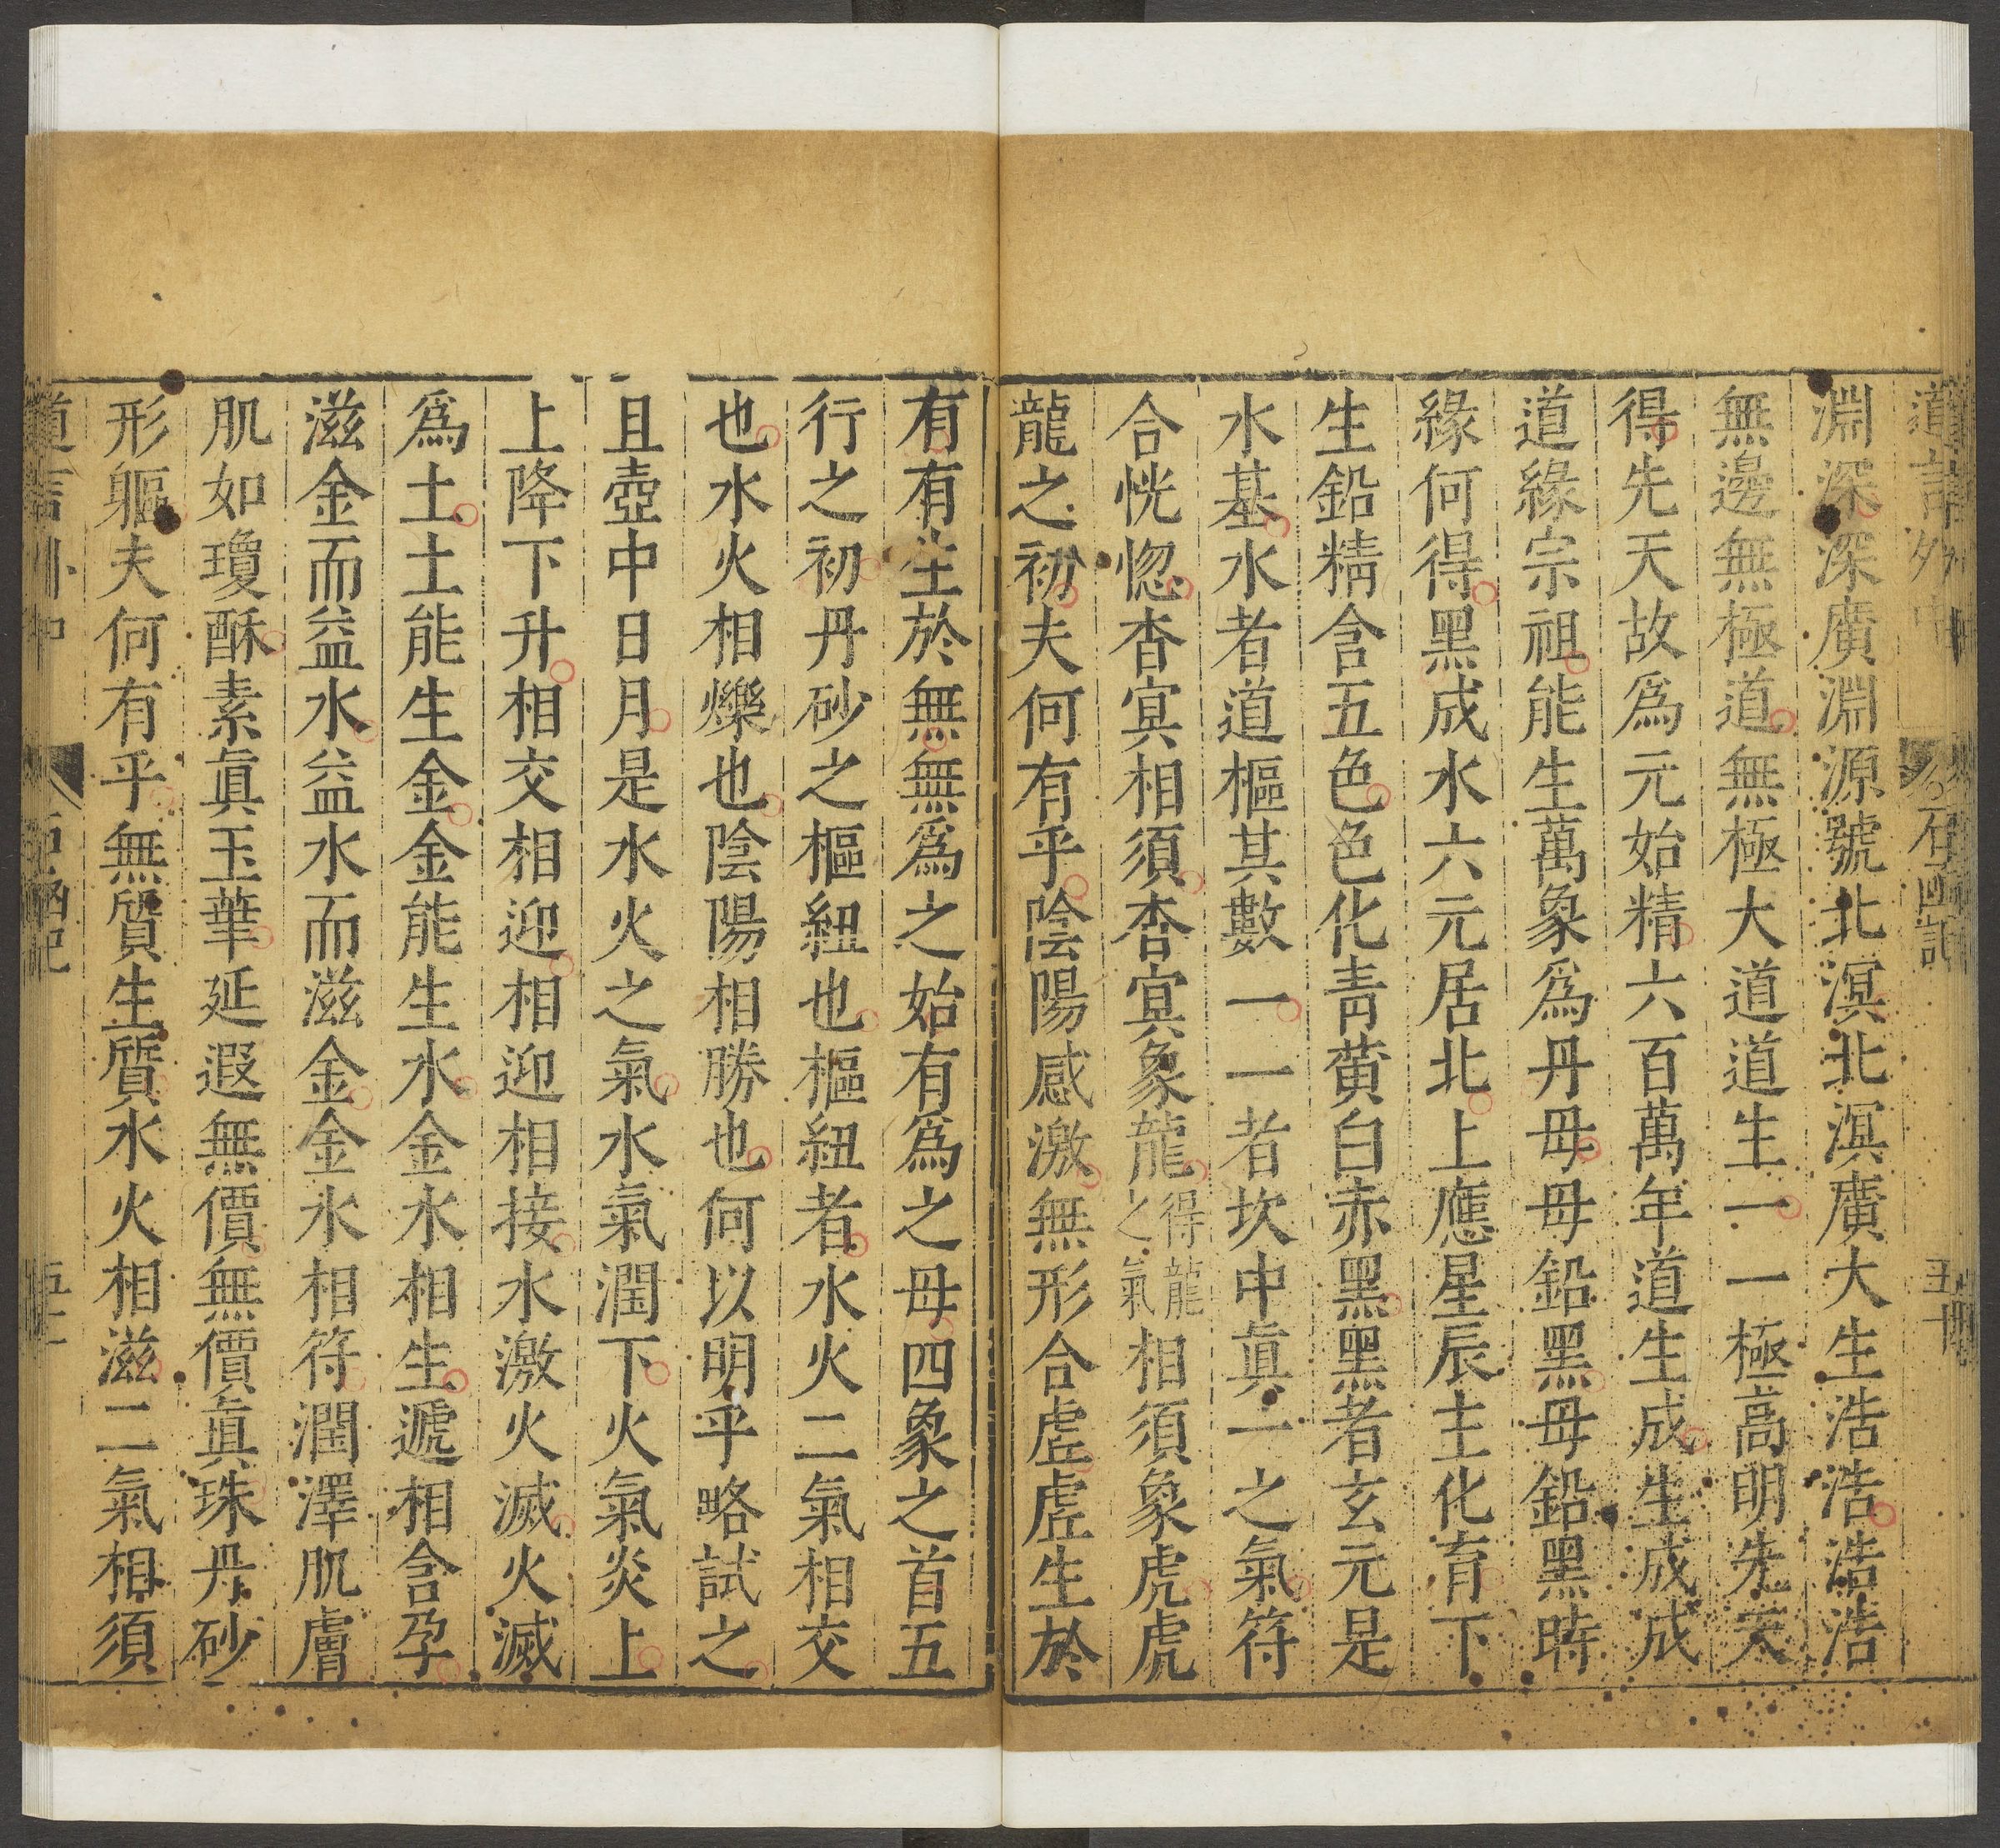 道言外中 石凾記 五十
淵深深廣淵源號北溟北溟廣大生浩浩浩浩
無邊無極道無極大道道生一一極高明先天
得先天故爲元始精六百萬年道生成生成成
道緣宗祖能生萬象爲丹母母鉛黑母鉛黑時
緣何得黑成水六元居北上應星辰主化育下
生鉛精含五色色化青黃白赤黑黑者玄元是
水基水者道樞其數一一者坎中眞一之氣符
合恍惚杳冥相須杳冥象龍得龍之氣相須象虎虎
龍之初夫何有乎陰陽感激無形合虛虛生於
有有生於無無爲之始有爲之母四象之首五
行之初丹砂之樞紐也樞紐者水火二氣相交
也水火相爍也陰陽相勝也何以明乎略試之
且壺中日月是水火之氣水氣潤下火氣炎上
上降下升相交相迎相迎相接水激火滅火滅
爲土土能生金金能生水金水相生遞相含孕
滋金而益水益水而滋金金水相符潤澤肌膚
肌如瓊酥素眞玉華延遐無價無價眞珠丹砂
形軀夫何有乎無質生質水火相滋二氣相須
道言外中 石凾記